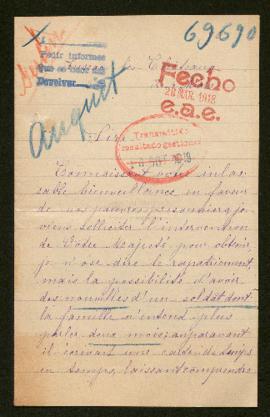 69690
Pedir informes
Devolver
Fecho
26 MAR. 1918
e.a.e.
Auquit
Sire
Transmitido
resultado gestiones
1918
Connaissant votre inlas-
sable bienveillance en faveur
de nos pauvres prisonniers je
viens solliciter l'intervention
de Votre Majesté pour obtenir
je n'ose dire le rapatriement,
mais la possibilité d'avoir
des nouvelles d'un soldat dont
la famille n'entend plus
parler deux mois; auparavant
il envoyait une carte de temps
en temps laissant comprendre